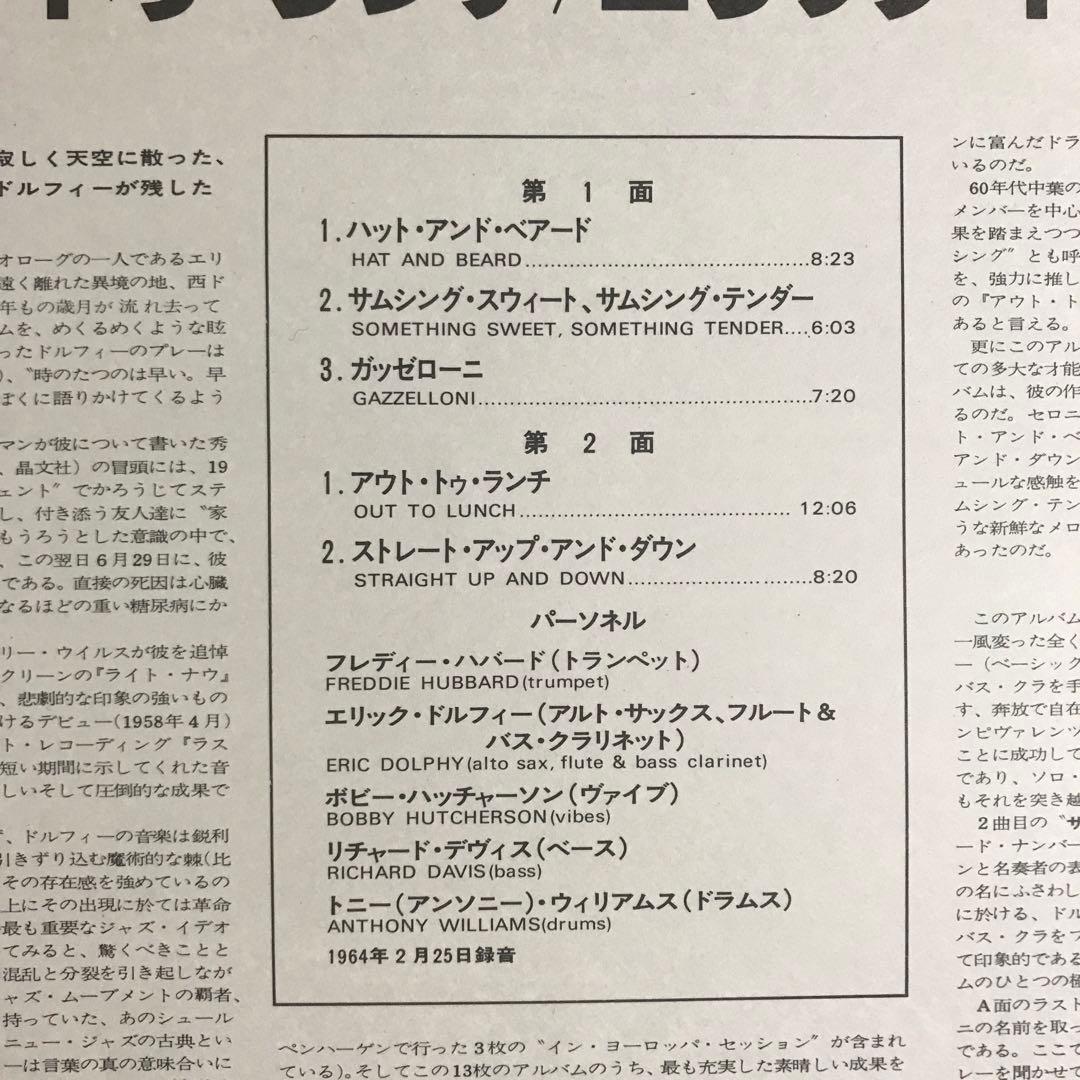 寂しく天空に散った、
ドルフィーが残した
オローグの一人であるエリ
遠く離れた異境の地、西ド
年もの歳月が流れ去って
ムを、めくるめくような眩
ったドルフィーのプレーは
)、〝時のたつのは早い。早
ぼくに語りかけてくるよう
マンが彼について書いた秀
、晶文社）の冒頭には、19
ェント〞でかろうじてステ
し、付き添う友人達に〝家
もうろうとした意識の中で、
、この翌日6月29日に、彼
である。直接の死因は心臓
なるほどの重い糖尿病にか
リー・ウイルスが彼を追悼
クリーンの『ライト・ナウ』
、悲劇的な印象の強いもの
けるデビュー(1958年4月)
ト・レコーディング『ラス
短い期間に示してくれた音
しいそして圧倒的な成果で
、ドルフィーの音楽は鋭利
引きずり込む魔術的な棘(比
その存在感を強めているの
上にその出現に於ては革命
最も重要なジャズ・イデオ
てみると、驚くべきことと
混乱と分裂を引き起しなが
ャズ・ムーブメントの覇者、
持っていた、あのシュール
ニュー・ジャズの古典とい
ーは言葉の真の意味合いに
第 1 面
1. ハット・アンド・ベアード
HAT AND BEARD........................................8:23
2. サムシング・スウィート、サムシング・テンダー
SOMETHING SWEET, SOMETHING TENDER....6:03
3. ガッゼローニ
GAZZELLONI................................................7:20
第 2 面
1. アウト・トゥ・ランチ
OUT TO LUNCH....................................... 12:06
2. ストレート・アップ・アンド・ダウン
STRAIGHT UP AND DOWN..........................8:20
パーソネル
フレディー・ハバード（トランペット）
FREDDIE HUBBARD(trumpet)
エリック・ドルフィー（アルト・サックス、フルート＆
バス・クラリネット）
ERIC DOLPHY(alto sax, flute & bass clarinet)
ボビー・ハッチャーソン（ヴァイブ）
BOBBY HUTCHERSON(vibes)
リチャード・デヴィス（ベース）
RICHARD DAVIS(bass)
トニー（アンソニー）・ウィリアムス（ドラムス）
ANTHONY WILLIAMS(drums)
1964年2月25日録音
ペンハーゲンで行った3枚の〝イン・ヨーロッパ・セッション〞が含まれ
ている)。そしてこの13枚のアルバムのうち、最も充実した素晴しい成果を
ンに富んだドラ
いるのだ。
60年代中葉の
メンバーを中心
果を踏まえつつ
シング〞とも呼
を、強力に推し
の『アウト・ト
あると言える。
更にこのアル
ての多大な才能
バムは、彼の作
るのだ。セロニ
ト・アンド・ベ
アンド・ダウン
ュールな感触を
ムシング・テン
うな新鮮なメロ
あったのだ。
このアルバム
一風変った全く
ー（ベーシック
バス・クラを手
す、奔放で自在
ンピヴァレンツ
ことに成功して
であり、ソロ・
もそれを突き越
2曲目の〝サ
ード・ナンバー
ンと名奏者の表
の名にふさわし
に於ける、ドル
バス・クラをフ
て印象的である
ムのひとつの極
A面のラスト
ニの名前を取っ
である。ここで
レーを聞かせて